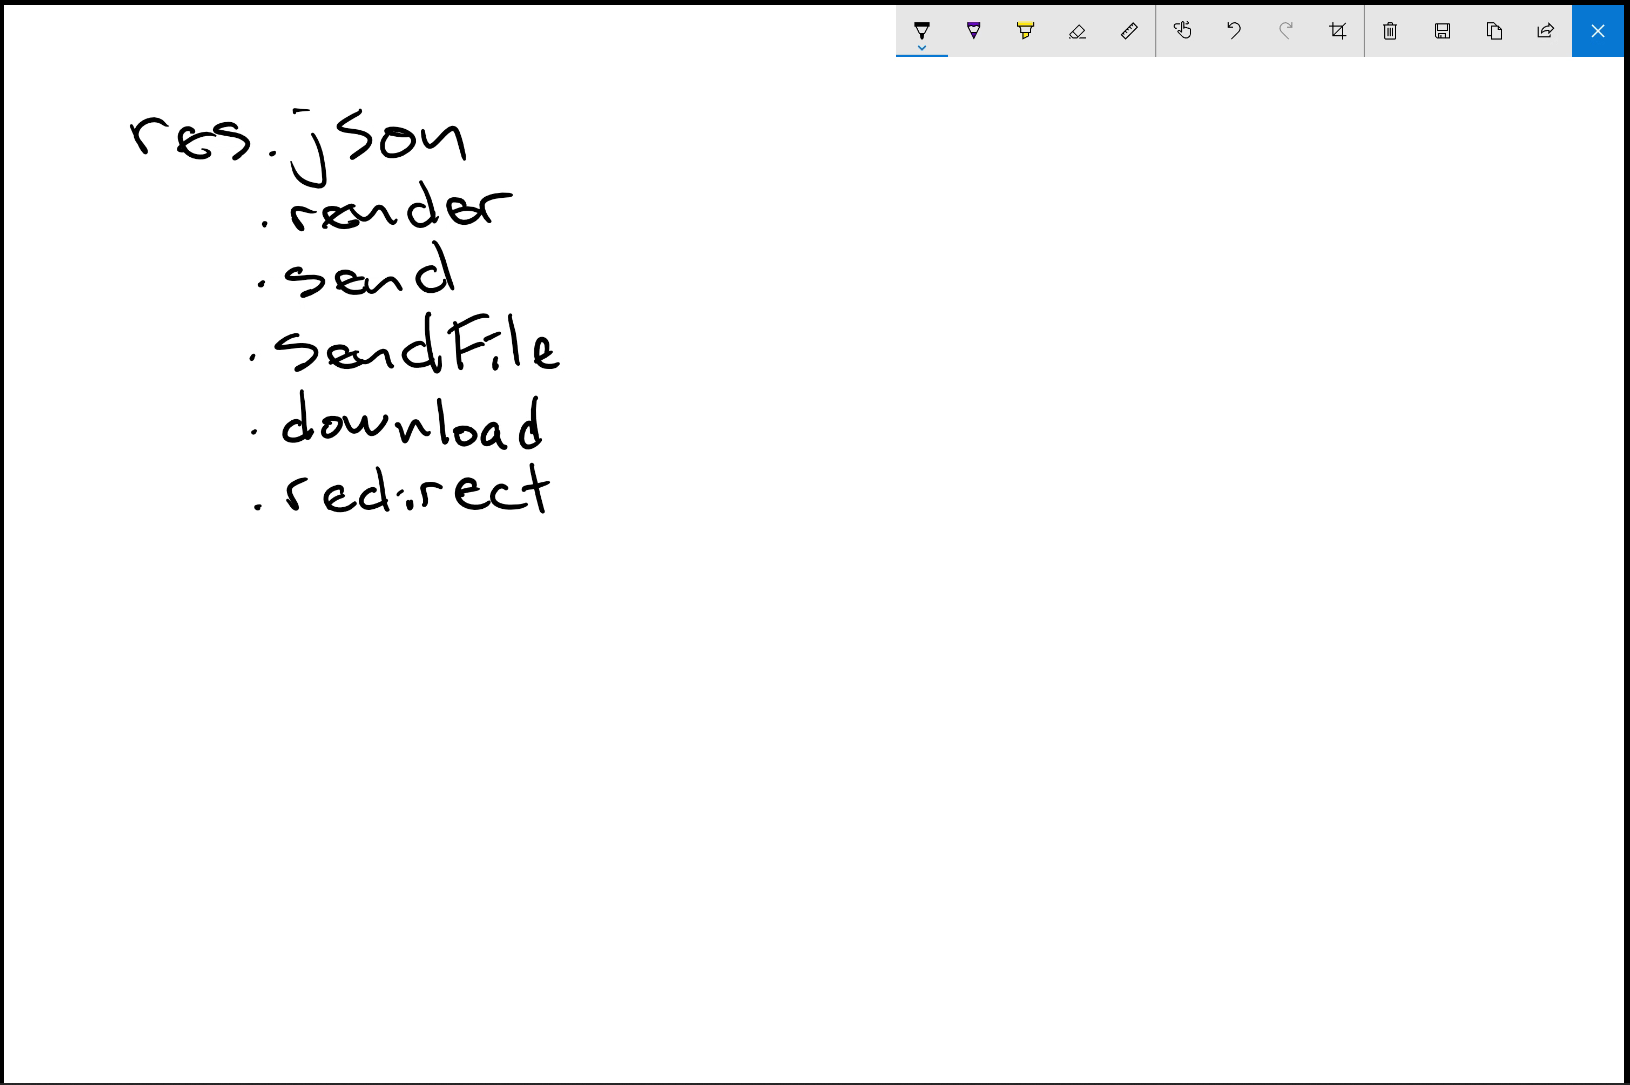 res.json
.render
.send
.sendFile
.download
.redirect